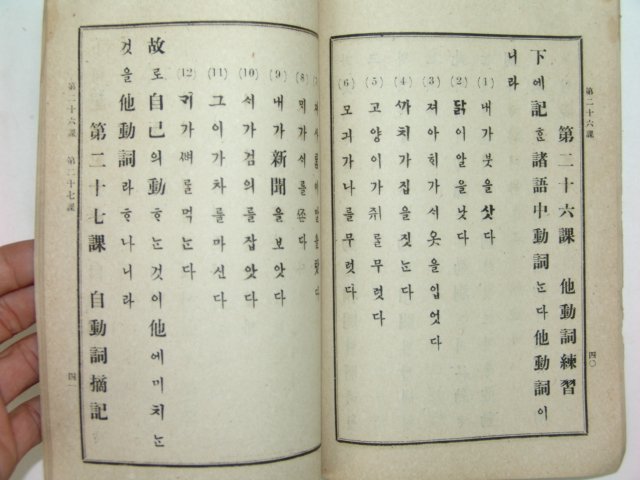 第二十六課 四〇
第二十六課 他動詞練習
下에記ᄒᆞᆫ諸語中動詞ᄂᆞᆫ다他動詞이
니라
(1) 내가붓을삿다
(2) 닭이알을낫다
(3) 져아ᄒᆡ가서옷을입엇다
(4) ᄭᅡ치가집을짓ᄂᆞᆫ다
(5) 고양이가쥐를무럿다
(6) 모긔가나를무럿다
(8)
(9) 내가新聞을보앗다
(10) 서가검의를잡앗다
(11) 그이가차를마신다
(12) ᄀᆡ가ᄲᅧ를먹ᄂᆞᆫ다
故로自己의動ᄒᆞᄂᆞᆫ것이他에미치ᄂᆞᆫ
것을他動詞라ᄒᆞ나니라
第二十七課 自動詞摘記
第二十六課 第二十七課 四一